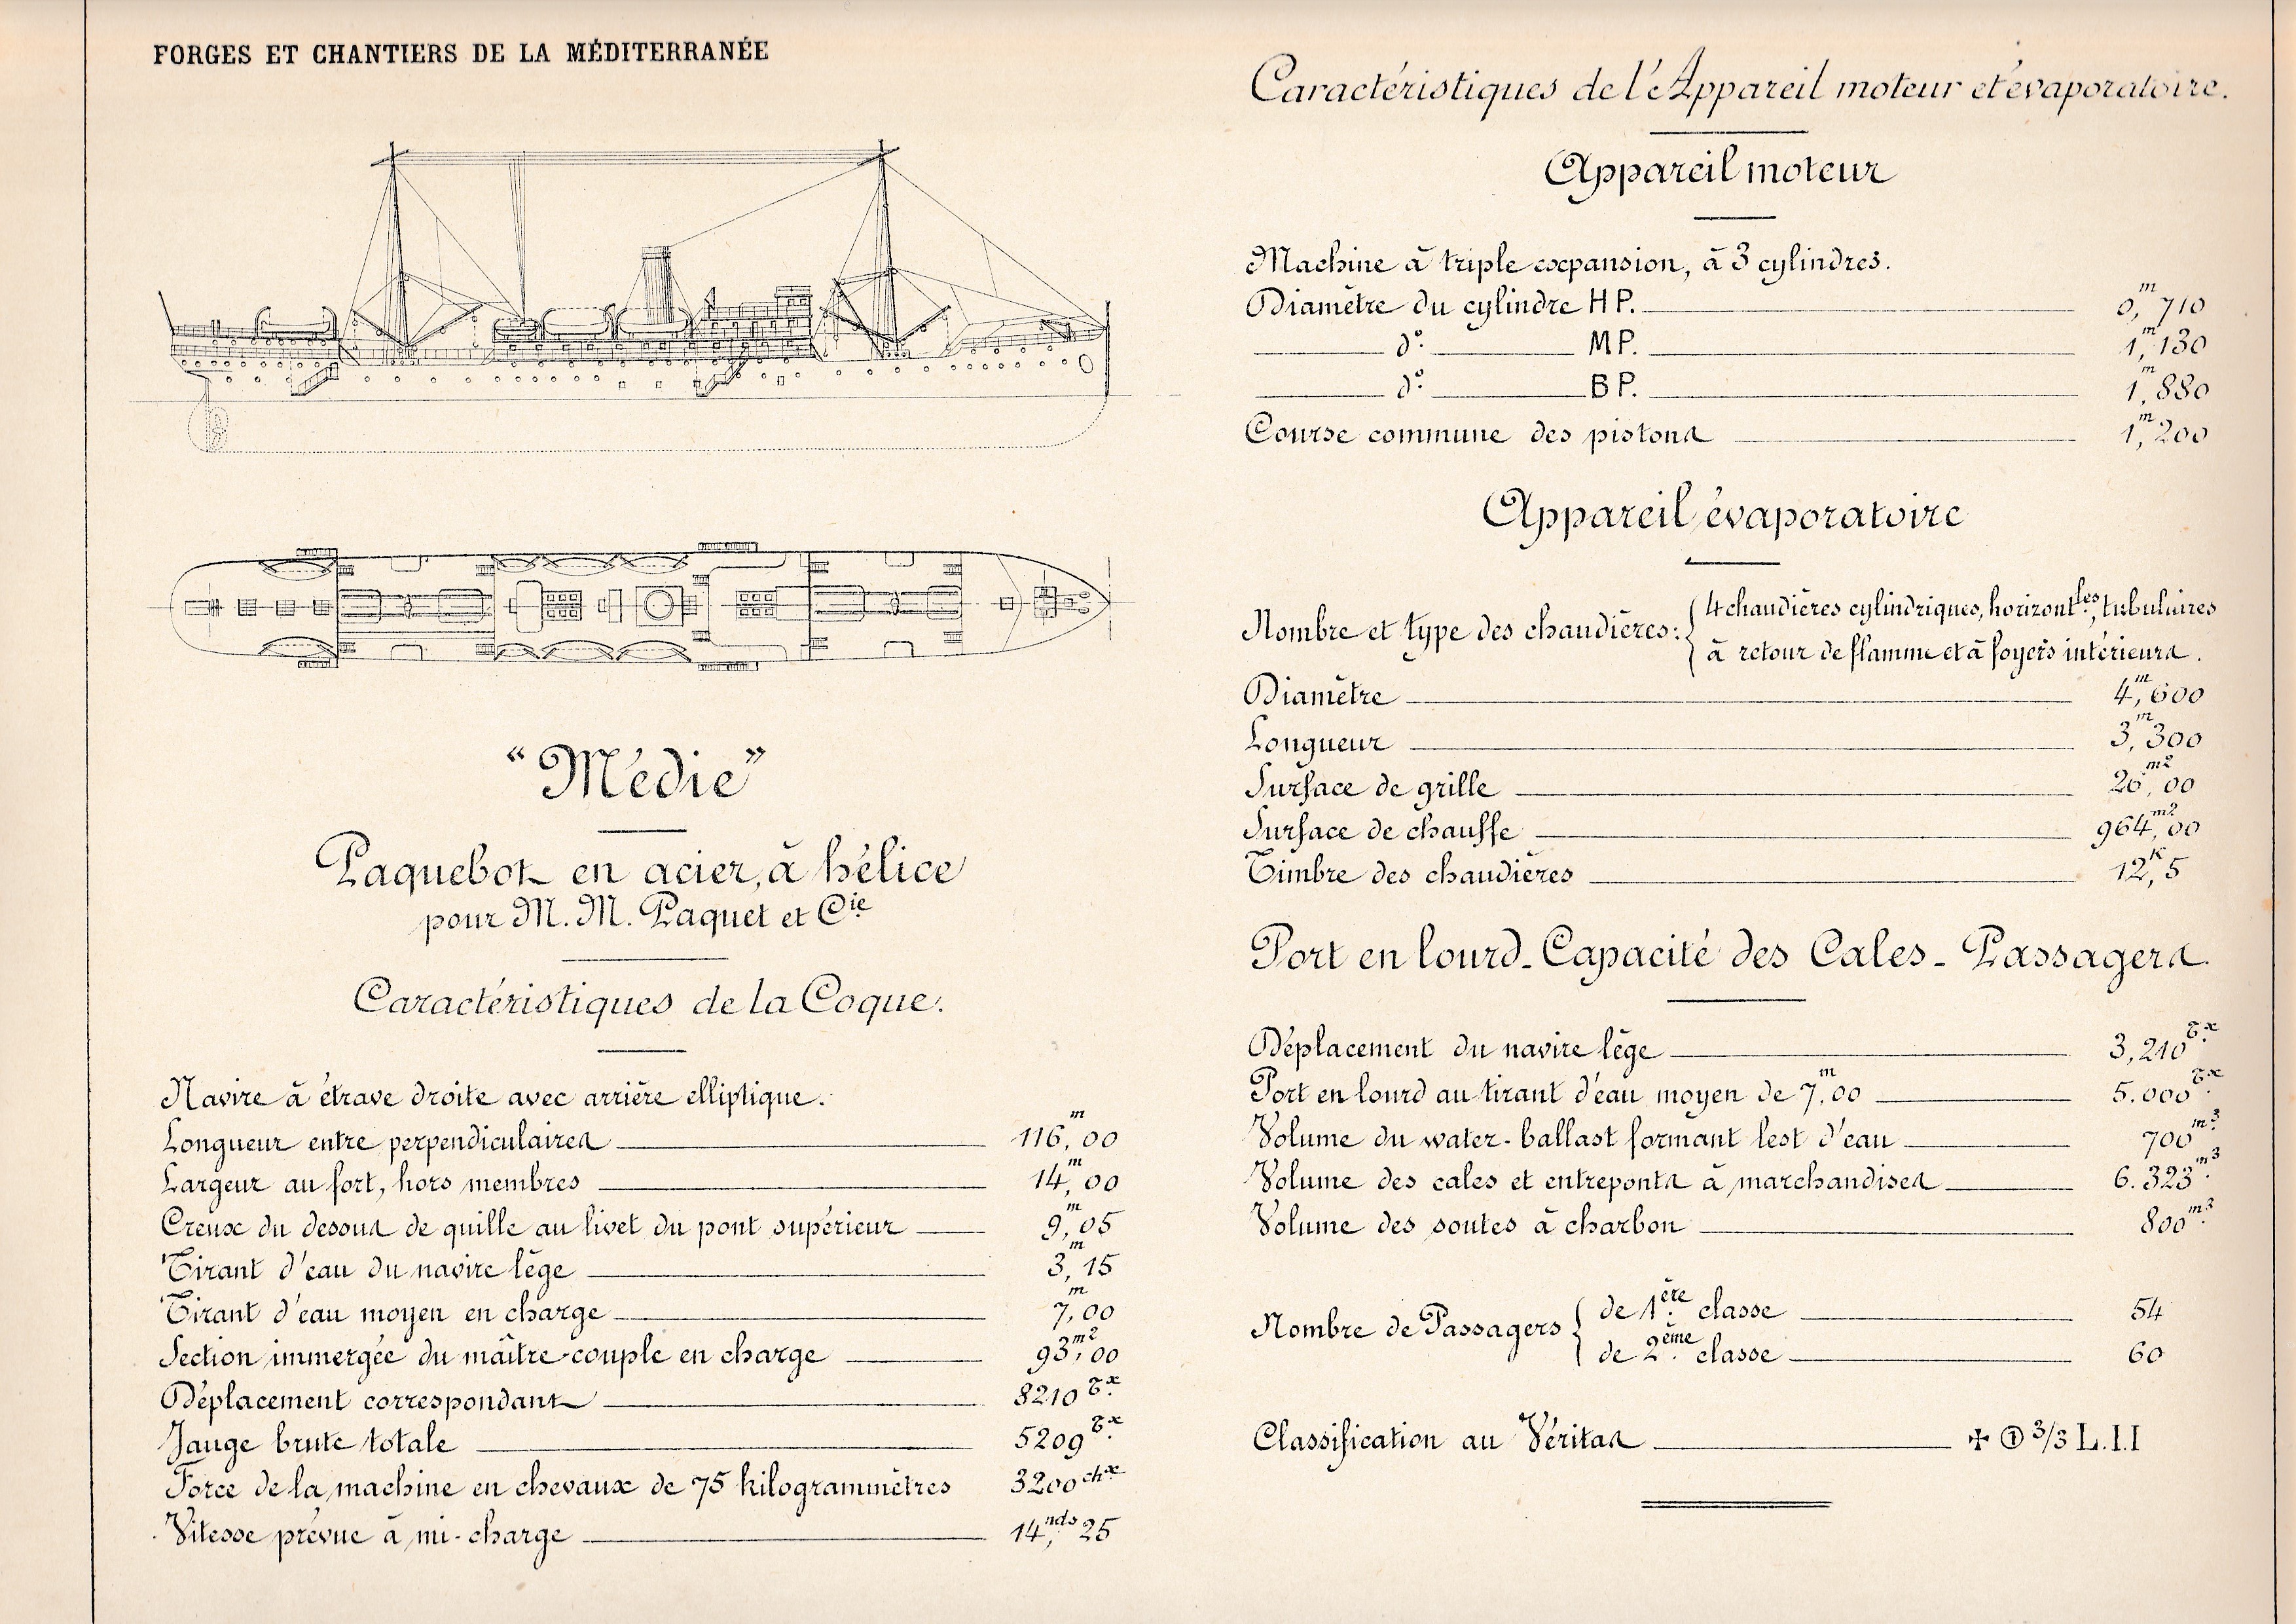 FORGES ET CHANTIERS DE LA MÉDITERRANÉE
"Médie"
Paquebot en acier, à hélice
pour M. M. Paquet et Cie
Caractéristiques de la Coque.
Navire à étrave droite avec arrière elliptique.
Longueur entre perpendiculaires 116,m00
Largeur au fort, hors membres 14,m00
Creux du dessus de quille au livet du pont supérieur 9,m05
Tirant d'eau du navire lège 3,m15
Tirant d'eau moyen en charge 7,m00
Section immergée du maître-couple en charge 93,m200
Déplacement correspondant 8210 Tx
Jauge brute totale 5209 Tx
Force de la machine en chevaux de 75 kilogrammètres 3200 chx
Vitesse prévue à mi-charge 14,nds25
Caractéristiques de l'Appareil moteur et évaporatoire.
Appareil moteur
Machine à triple expansion, à 3 cylindres.
Diamètre du cylindre HP. 0,m710
do. MP. 1,m130
do. BP. 1,m880
Course commune des pistons 1,m200
Appareil évaporatoire
Nombre et type des chaudières: { 4 chaudières cylindriques, horizontles, tubulaires
à retour de flamme et à foyers intérieurs.
Diamètre 4,m600
Longueur 3,m300
Surface de grille 26,m200
Surface de chauffe 964,m200
Timbre des chaudières 12,K5
Port en lourd - Capacité des Cales - Passagers
Déplacement du navire lège 3,210 Tx
Port en lourd au tirant d'eau moyen de 7,m00 5.000 Tx
Volume du water-ballast formant lest d'eau 700 m3
Volume des cales et entreponts à marchandises 6.323 m3
Volume des soutes à charbon 800 m3
Nombre de Passagers { de 1ère classe 54
de 2ème classe 60
Classification au Véritas ✠ ① 3/3 L.I.I